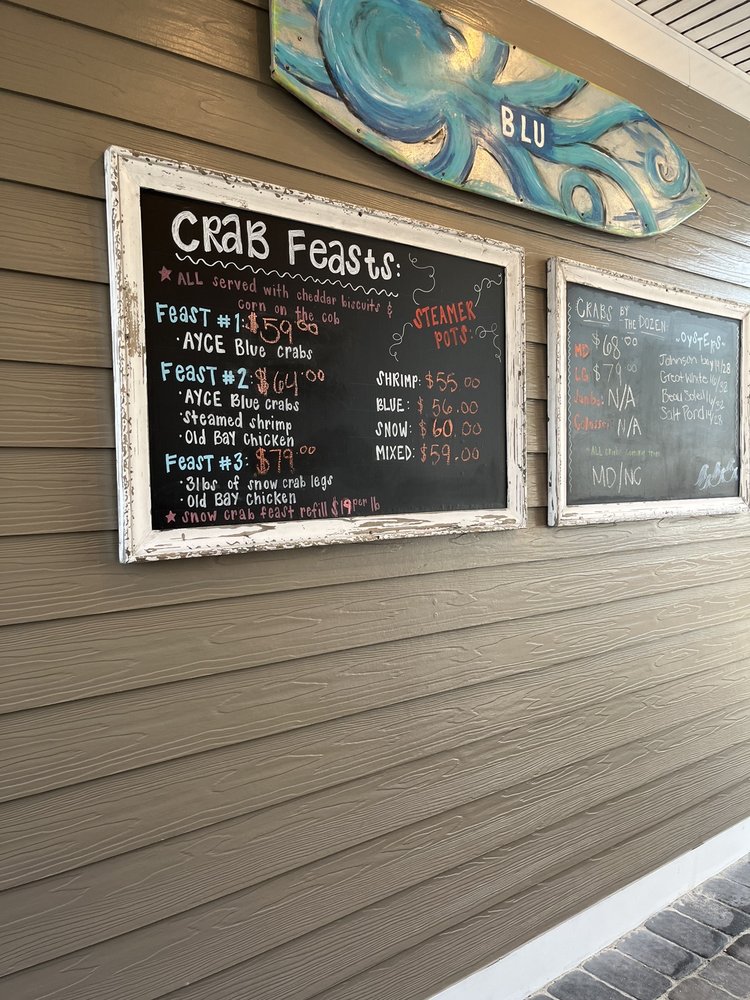 BLU
CRAB FEASTS:
★ ALL served with cheddar biscuits &
corn on the cob
Feast #1: $59.00
· AYCE Blue crabs
Feast #2: $64.00
· AYCE Blue crabs
· steamed shrimp
· Old Bay chicken
Feast #3: $79.00
· 3lbs of snow crab legs
· Old Bay Chicken
★ snow crab feast refill $19 per lb
STEAMER
POTS:
SHRIMP: $55.00
BLUE: $56.00
SNOW: $60.00
MIXED: $59.00
CRABS BY
THE DOZEN:
MD $68.00
LG $79.00
Jumbo: N/A
Colossal: N/A
ALL crabs coming from
MD/NC
OYSTERS
Johnson bay 14/28
Great White 16/32
Beau Soleil 16/32
Salt Pond 14/28